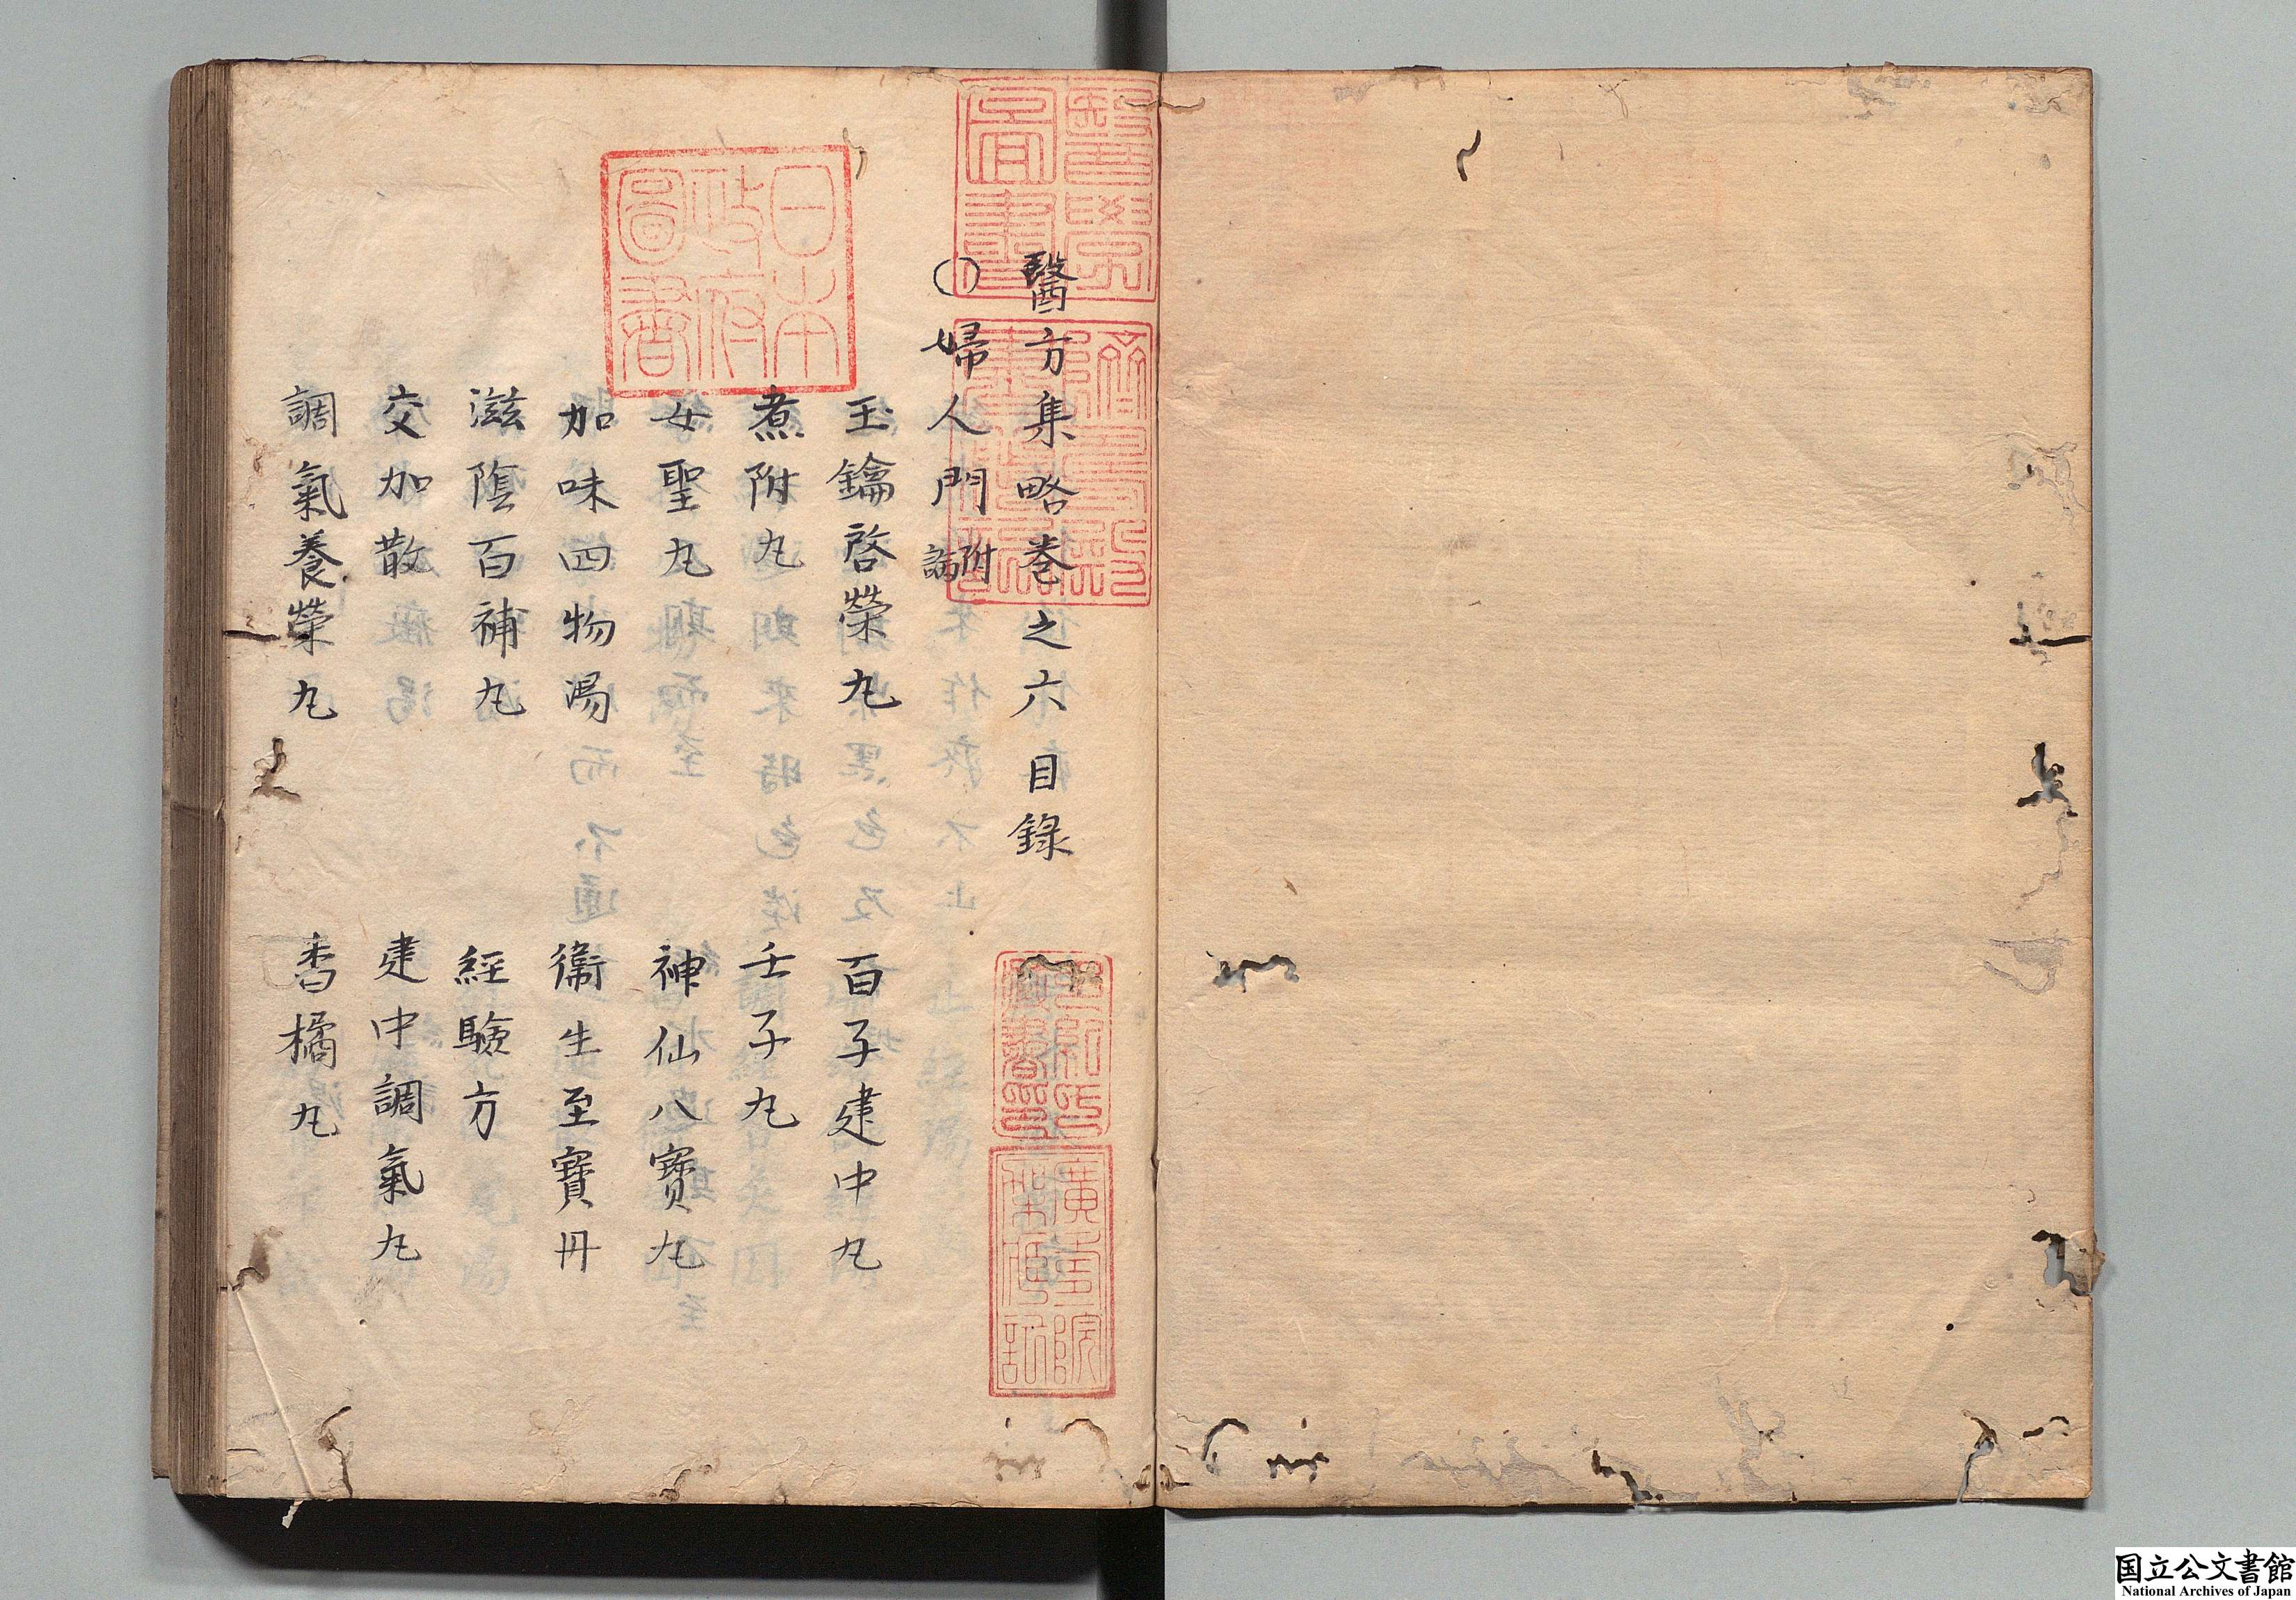 醫方集略卷之六目錄
○婦人門 附論
玉鑰啓榮丸 百子建中丸
煮附丸 壬子丸
女聖丸 神仙八寶丸
加味四物湯 衞生至寶丹
滋陰百補丸 經驗方
交加散 建中調氣丸
調氣養榮丸 香橘丸
日本政府圖書
醫學圖書
躋壽殿書籍記
廣壽院架藏記
国立公文書館
National Archives of Japan